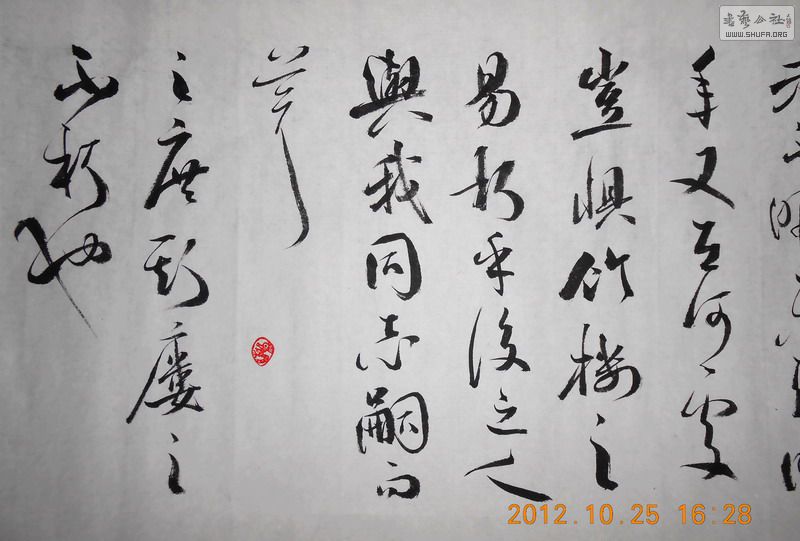 年又在何處
豈懼竹樓之
易朽乎後之人
與我同志嗣而
葺
之庶斯樓之
不朽也
書藝公社
WWW.SHUFA.ORG
2012.10.25 16:28